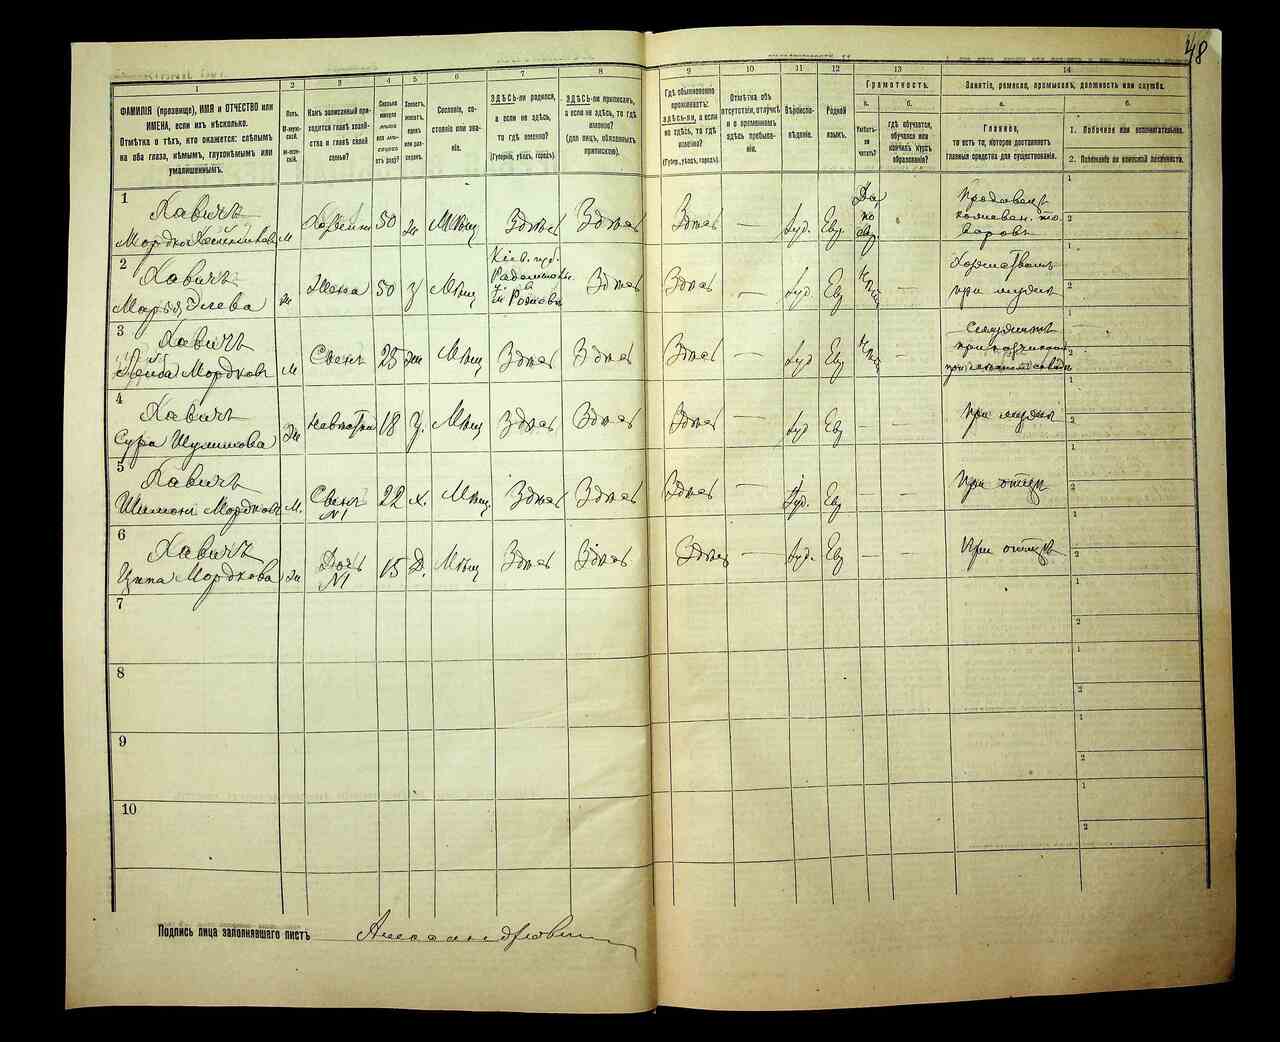 48
1
2
3
4
5
6
7
8
9
10
11
12
13
14
ФАМИЛІЯ (прозвище), ИМЯ и ОТЧЕСТВО или
ИМЕНА, если ихъ нѣсколько.
Отмѣтка о тѣхъ, кто окажется: слѣпымъ
на оба глаза, нѣмымъ, глухонѣмымъ или
умалишеннымъ.
Полъ.
М-мужской.
Ж-женскій.
Какъ записанный приходится главѣ хозяйства и главѣ своей семьи?
Сколько минуло лѣтъ или мѣсяцевъ отъ роду?
Холостъ, женатъ, вдовъ или разведенъ.
Сословіе, состояніе или званіе.
ЗДѢСЬ-ли родился,
а если не здѣсь,
то гдѣ именно?
(Губернія, уѣздъ, городъ).
ЗДѢСЬ-ли приписанъ,
а если не здѣсь, то гдѣ
именно?
(для лицъ, обязанныхъ
припиской).
Гдѣ обыкновенно
проживаетъ:
ЗДѢСЬ-ли, а если
не здѣсь, то гдѣ
именно?
(Губер., уѣздъ, городъ).
Отмѣтка объ
отсутствіи, отлучкѣ
и о временномъ
здѣсь пребываніи.
Вѣроисповѣданіе.
Родной
языкъ.
Грамотность.
а.
Умѣетъ-ли
читать?
б.
гдѣ обучается,
обучался или
кончилъ курсъ
образованія?
Занятіе, ремесло, промыселъ, должность или служба.
а.
Главное,
то есть то, которое доставляетъ
главныя средства для существованія.
б.
1. Побочное или вспомогательное.
2. Положеніе по воинской повинности.
1
Хавичъ
Мордко
м
Хозяинъ
50
ж
Мѣщ
Здѣсь
Здѣсь
Здѣсь
—
Іуд.
Евр
Да,
по
евр.
Продавецъ
товаровъ
2
Хавичъ
Марья Элева
ж
Жена
50
з
Мѣщ
Кіев. губ.
Здѣсь
Здѣсь
—
Іуд
Евр
—
при мужѣ
3
Хавичъ
Лейба Мордковъ
м
Сынъ
25
ж
Мѣщ
Здѣсь
Здѣсь
Здѣсь
—
Іуд
Евр
—
4
Хавичъ
Сура Шулимова
ж
Невѣстка
18
з.
Мѣщ
Здѣсь
Здѣсь
Здѣсь
—
Іуд
Евр
—
—
При мужѣ
5
Хавичъ
Шимонъ Мордковъ
м.
Сынъ
№1
22
х.
Мѣщ.
Здѣсь
Здѣсь
Здѣсь
—
Іуд.
Евр
—
—
При отцѣ
6
Хавичъ
Ципа Мордкова
ж
Дочь
№1
15
д.
Мѣщ
Здѣсь
Здѣсь
Здѣсь
—
Іуд.
Евр
—
При отцѣ
7
8
9
10
Подпись лица заполнявшаго листъ